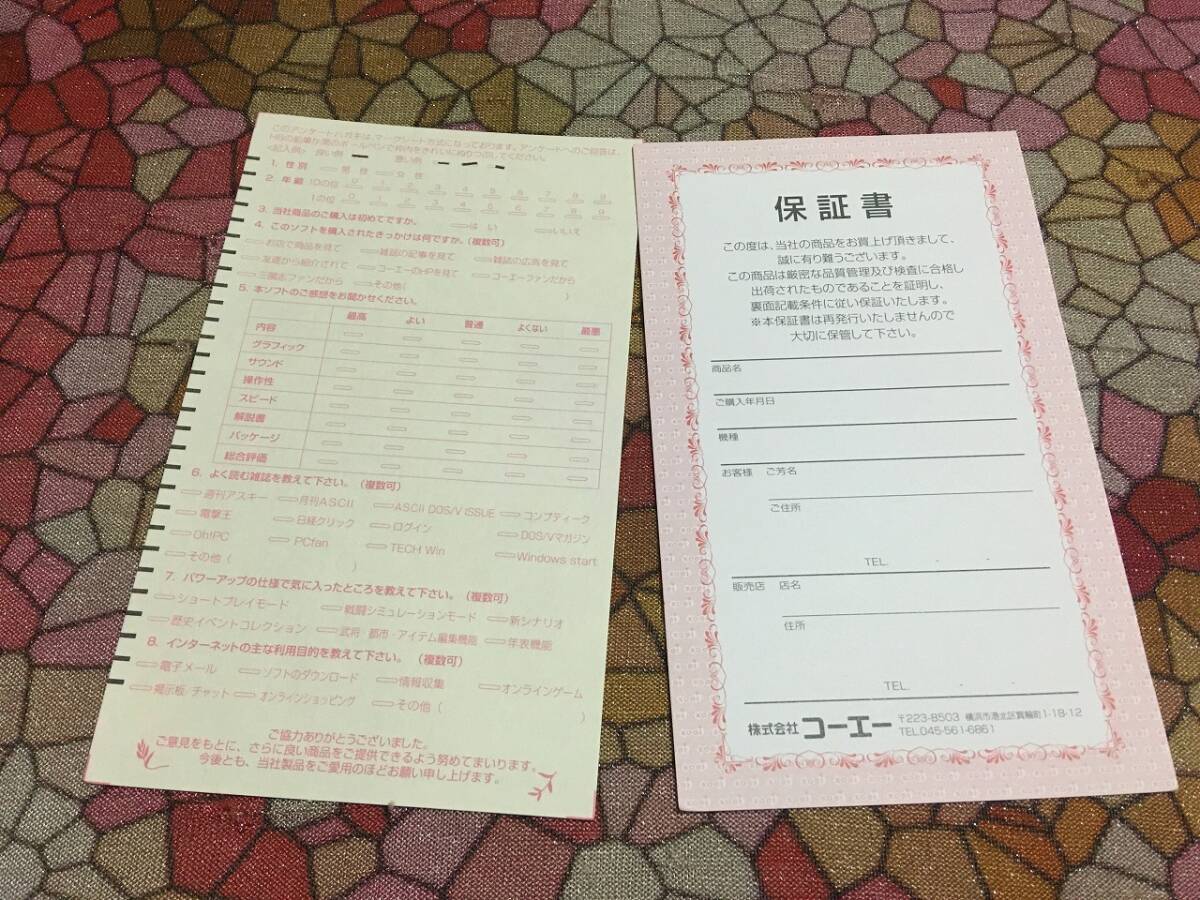 このアンケートハガキは、マークシート方式になっております。アンケートへのご回答は、
HBの鉛筆か黒のボールペンで枠内をきれいにぬりつぶしてください。
<記入例> 良い例 悪い例
1. 性別 男性 女性
2. 年齢 10の位 0 1 2 3 4 5 6 7 8 9
1の位 0 1 2 3 4 5 6 7 8 9
3. 当社商品のご購入は初めてですか。 はい いいえ
4. このソフトを購入されたきっかけは何ですか。(複数可)
お店で商品を見て 雑誌の記事を見て 雑誌の広告を見て
友達から紹介されて コーエーのHPを見て コーエーファンだから
三國志ファンだから その他( )
5. 本ソフトのご感想をお聞かせください。
最高 よい 普通 よくない 最悪
内容
グラフィック
サウンド
操作性
スピード
解説書
パッケージ
総合評価
6. よく読む雑誌を教えて下さい。(複数可)
週刊アスキー 月刊ASCII ASCII DOS/V ISSUE コンプティーク
電撃王 日経クリック ログイン DOS/Vマガジン
Oh!PC PCfan TECH Win Windows start
その他( )
7. パワーアップの仕様で気に入ったところを教えて下さい。(複数可)
ショートプレイモード 戦闘シミュレーションモード 新シナリオ
歴史イベントコレクション 武将・都市・アイテム編集機能 年表機能
8. インターネットの主な利用目的を教えて下さい。(複数可)
電子メール ソフトのダウンロード 情報収集 オンラインゲーム
掲示板/チャット オンラインショッピング その他( )
ご協力ありがとうございました。
ご意見をもとに、さらに良い商品をご提供できるよう努めてまいります。
今後とも、当社製品をご愛用のほどお願い申し上げます。
保証書
この度は、当社の商品をお買上げ頂きまして、
誠に有り難うございます。
この商品は厳密な品質管理及び検査に合格し
出荷されたものであることを証明し、
裏面記載条件に従い保証いたします。
※本保証書は再発行いたしませんので
大切に保管して下さい。
商品名
ご購入年月日
機種
お客様 ご芳名
ご住所
TEL. - -
販売店 店名
住所
TEL. - -
株式会社 コーエー 〒223-8503 横浜市港北区箕輪町1-18-12
TEL.045-561-6861